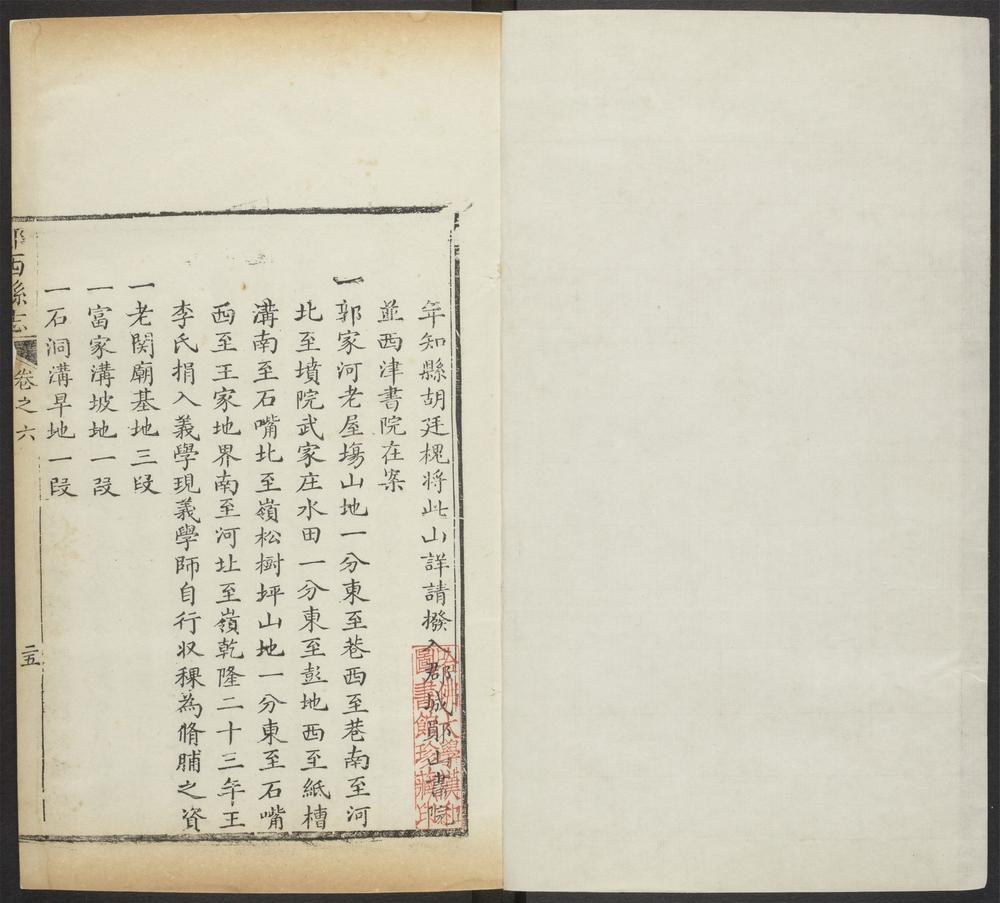 年知縣胡廷槐將此山詳請撥入郡城鄖山書院
並西津書院在案
一郭家河老屋塲山地一分東至巷西至巷南至河
北至墳院武家庄水田一分東至彭地西至紙槽
溝南至石嘴北至嶺松樹坪山地一分東至石嘴
西至王家地界南至河北至嶺乾隆二十三年王
李氏捐入義學現義學師自行収稞為脩脯之資
一老関廟基地三段
一富家溝坡地一段
一石洞溝旱地一段
西縣志
卷之六
二五
學漢和
圖書館珍藏印